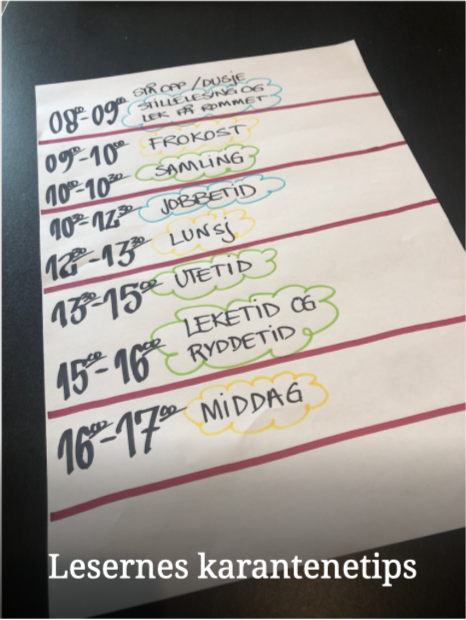 STÅ OPP / DUSJE
08⁰⁰-09⁰⁰ STILLELESING OG
LEK PÅ ROMMET
09⁰⁰-10⁰⁰ FROKOST
10⁰⁰-10³⁰ SAMLING
10³⁰-12³⁰ JOBBETID
12³⁰-13³⁰ LUNSJ
13³⁰-15⁰⁰ UTETID
LEKETID OG
15⁰⁰-16⁰⁰ RYDDETID
16⁰⁰-17⁰⁰ MIDDAG
Lesernes karantenetips